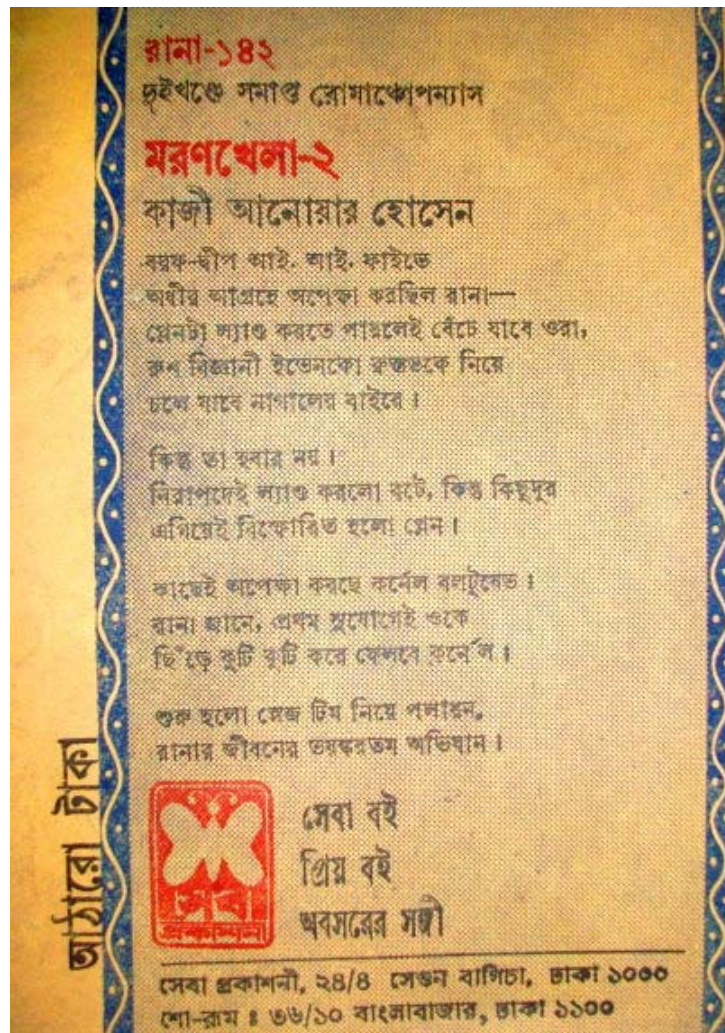 রানা-১৪২
দুইখণ্ডে সমাপ্ত রোমাঞ্চোপন্যাস
মরণখেলা-২
কাজী আনোয়ার হোসেন
বরফ-দ্বীপ আই. আই. ফাইভে
অধীর আগ্রহে অপেক্ষা করছিল রানা—
প্লেনটা ল্যাণ্ড করতে পারলেই বেঁচে যাবে ওরা,
রুশ বিজ্ঞানী ইভেনকো রুস্তভকে নিয়ে
চলে যাবে নাগালের বাইরে।
কিন্তু তা হবার নয়।
নিরাপদেই ল্যাণ্ড করলো বটে, কিন্তু কিছুদূর
এগিয়েই বিস্ফোরিত হলো প্লেন।
কাছেই অপেক্ষা করছে কর্নেল বলটুয়েভ।
রানা জানে, প্রথম সুযোগেই ওকে
ছিঁড়ে কুটি কুটি করে ফেলবে কর্নেল।
শুরু হলো স্লেজ টিম নিয়ে পলায়ন,
রানার জীবনের ভয়ঙ্করতম অভিযান।
আঠারো টাকা
সেবা
প্রকাশনী
সেবা বই
প্রিয় বই
অবসরের সঙ্গী
সেবা প্রকাশনী, ২৪/৪ সেগুন বাগিচা, ঢাকা ১০০০
শো-রূম ঃ ৩৬/১০ বাংলাবাজার, ঢাকা ১১০০